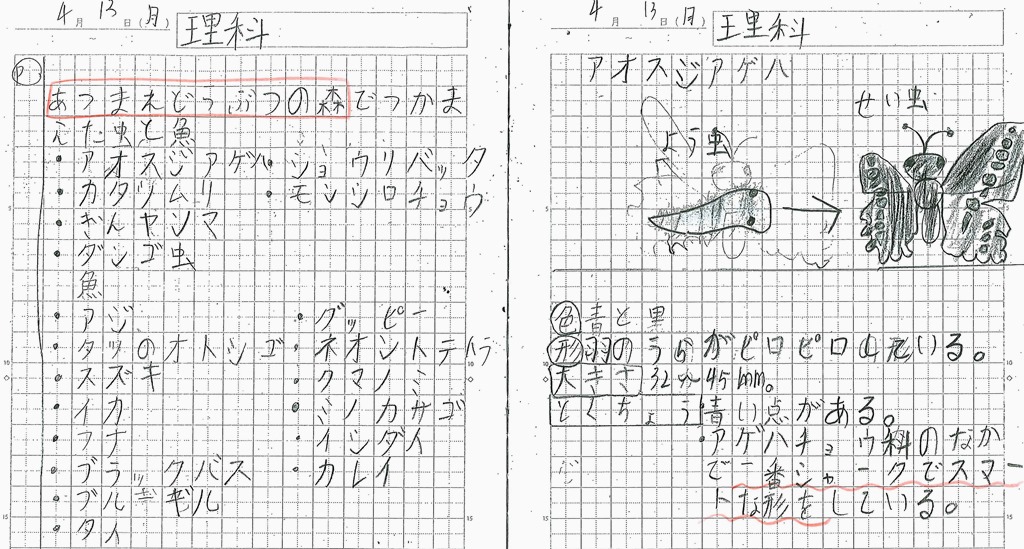 4月13日(月)
理科
あつまれどうぶつの森でつかま
えた虫と魚
・アオスジアゲハ ・ショウリバッタ
・カタツムリ ・モンシロチョウ
・ぎんヤンマ
・ダンゴ虫
魚
・アジ ・グッピー
・タツのオトシゴ ・ネオントテトラ
・スズキ ・クマノミ
・イカ ・ミノカサゴ
・フナ ・イシダイ
・ブラックバス ・カレイ
・ブルギギル
・タイ
4月13日(月)
理科
アオスジアゲハ
よう虫
せい虫
色 青と黒
形 羽のうらがピロピロしている。
大きさ 32〜45mm。
とくちょう 青い点がある。
・アゲハチョウ科のなか
で一番シャークでスマー
トな形をしている。